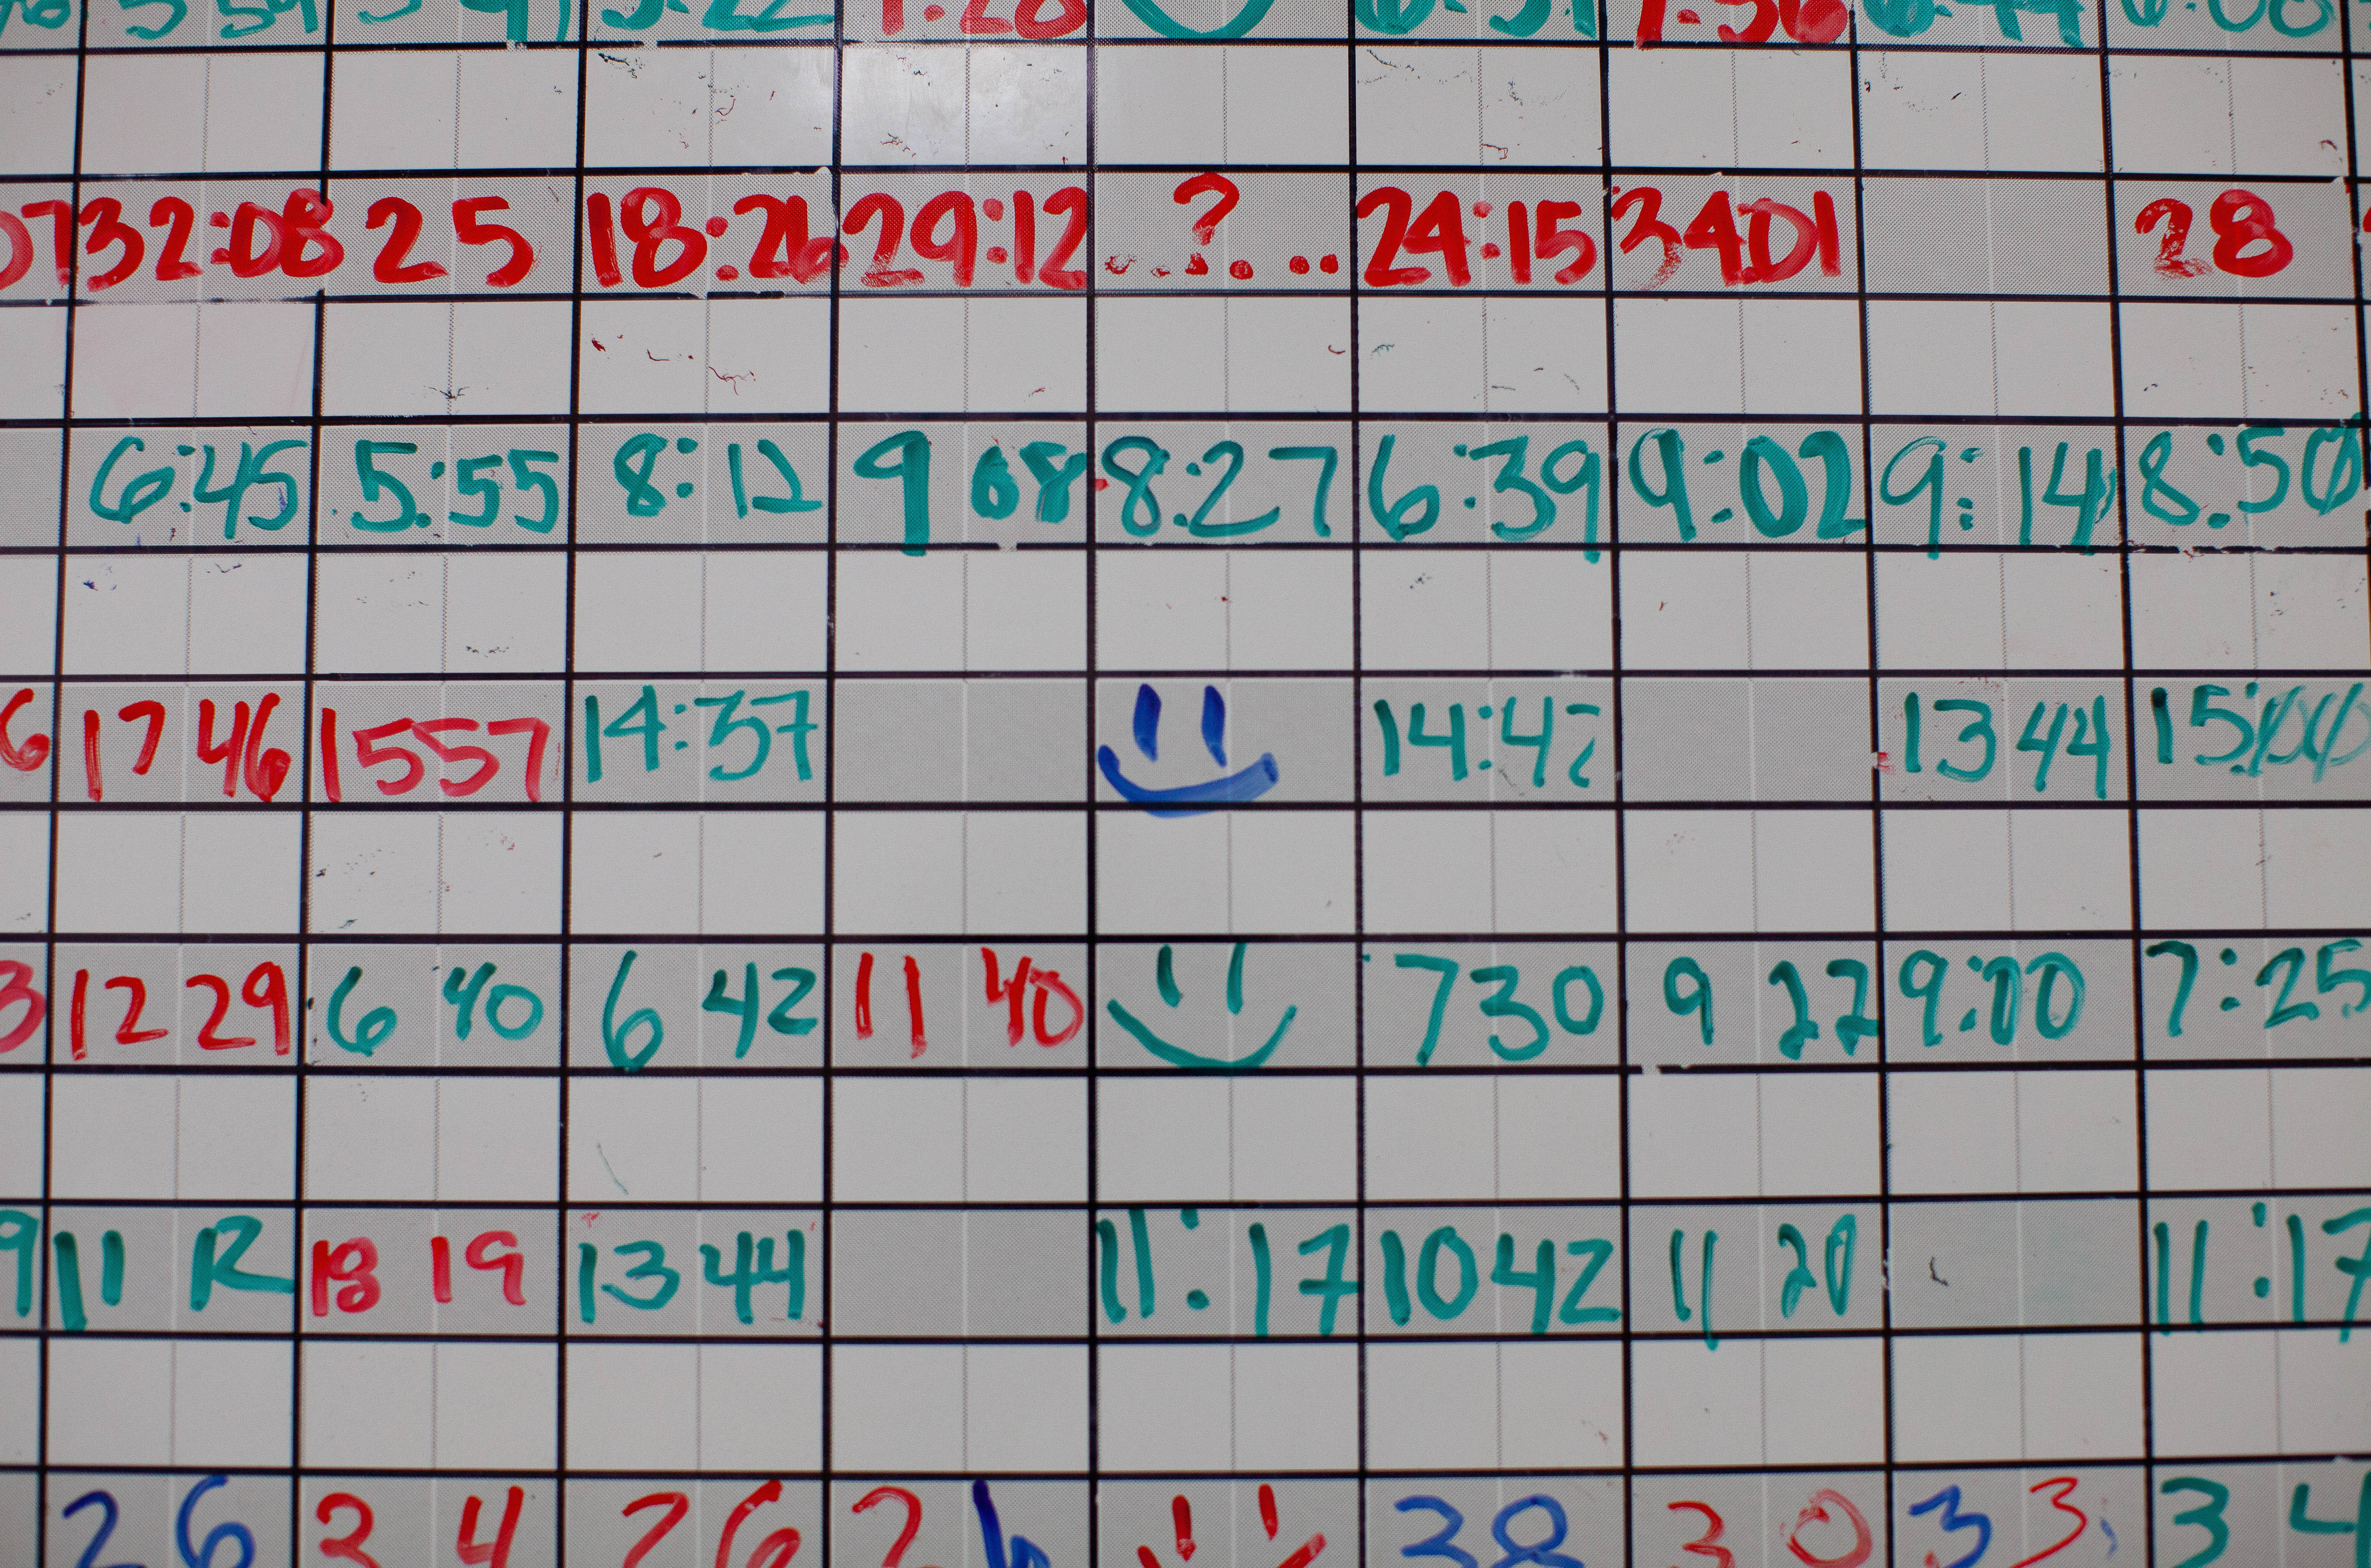 32:08 25 18:26 29:12 ..?... 24:15 3401 28
6:45 5:55 8:12 9 08 8:27 6:39 9:02 9:14 8:50
17 46 1557 14:37 14:47 13 44 15:00
12 29 6 40 6 42 11 40 730 9 22 9:00 7:25
11 12 18 19 13 44 11:17 1042 11 20 11:17
26 34 26 2 38 30 33 34